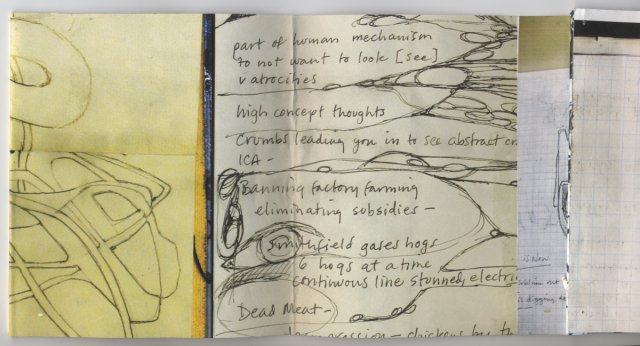 part of human mechanism
to not want to look [see]
v atrocities
high concept thoughts
Crumbs leading you in to see abstract
ICA -
Banning factory farming
eliminating subsidies -
Smithfield gases hogs
6 hogs at a time
continuous line stunned, electri
Dead Meat -
ression - chickens by th
is Now
out
is digging